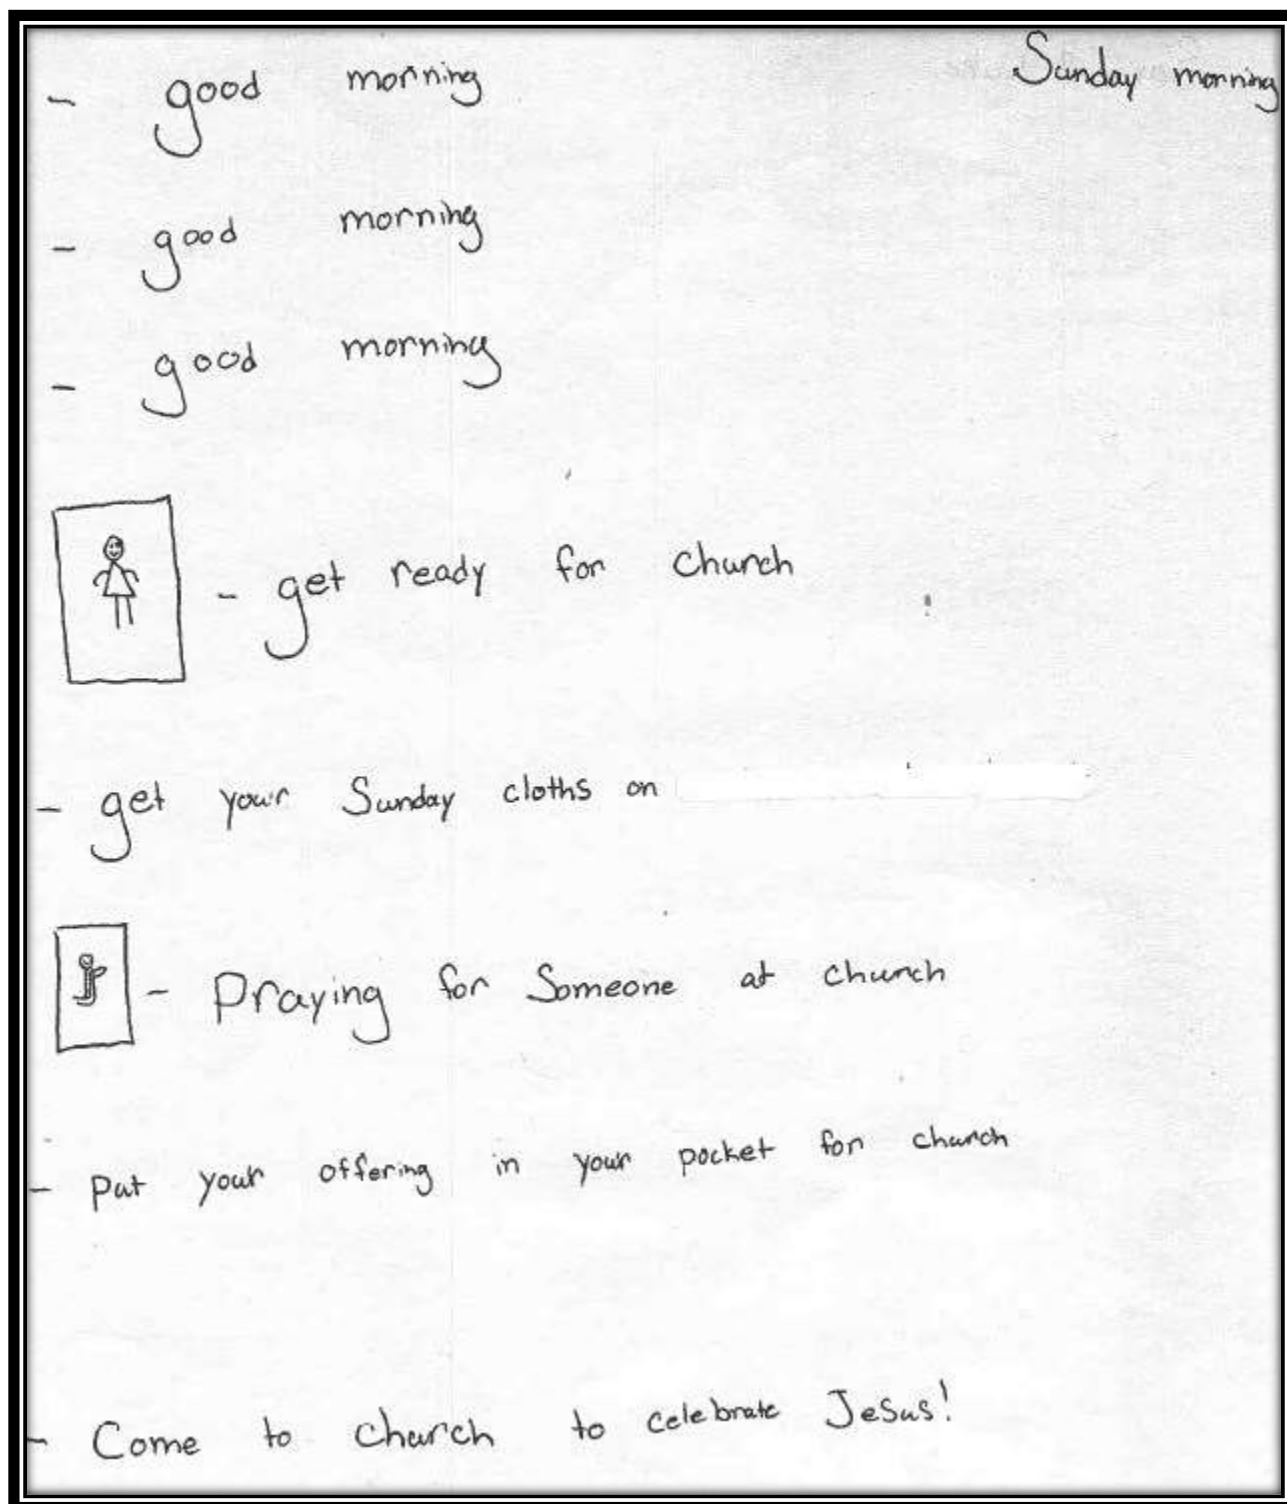 Sunday morning
- good morning
- good morning
- good morning
- get ready for church
- get your Sunday cloths on
- Praying for Someone at church
- Put your offering in your pocket for church
- Come to church to celebrate Jesus!